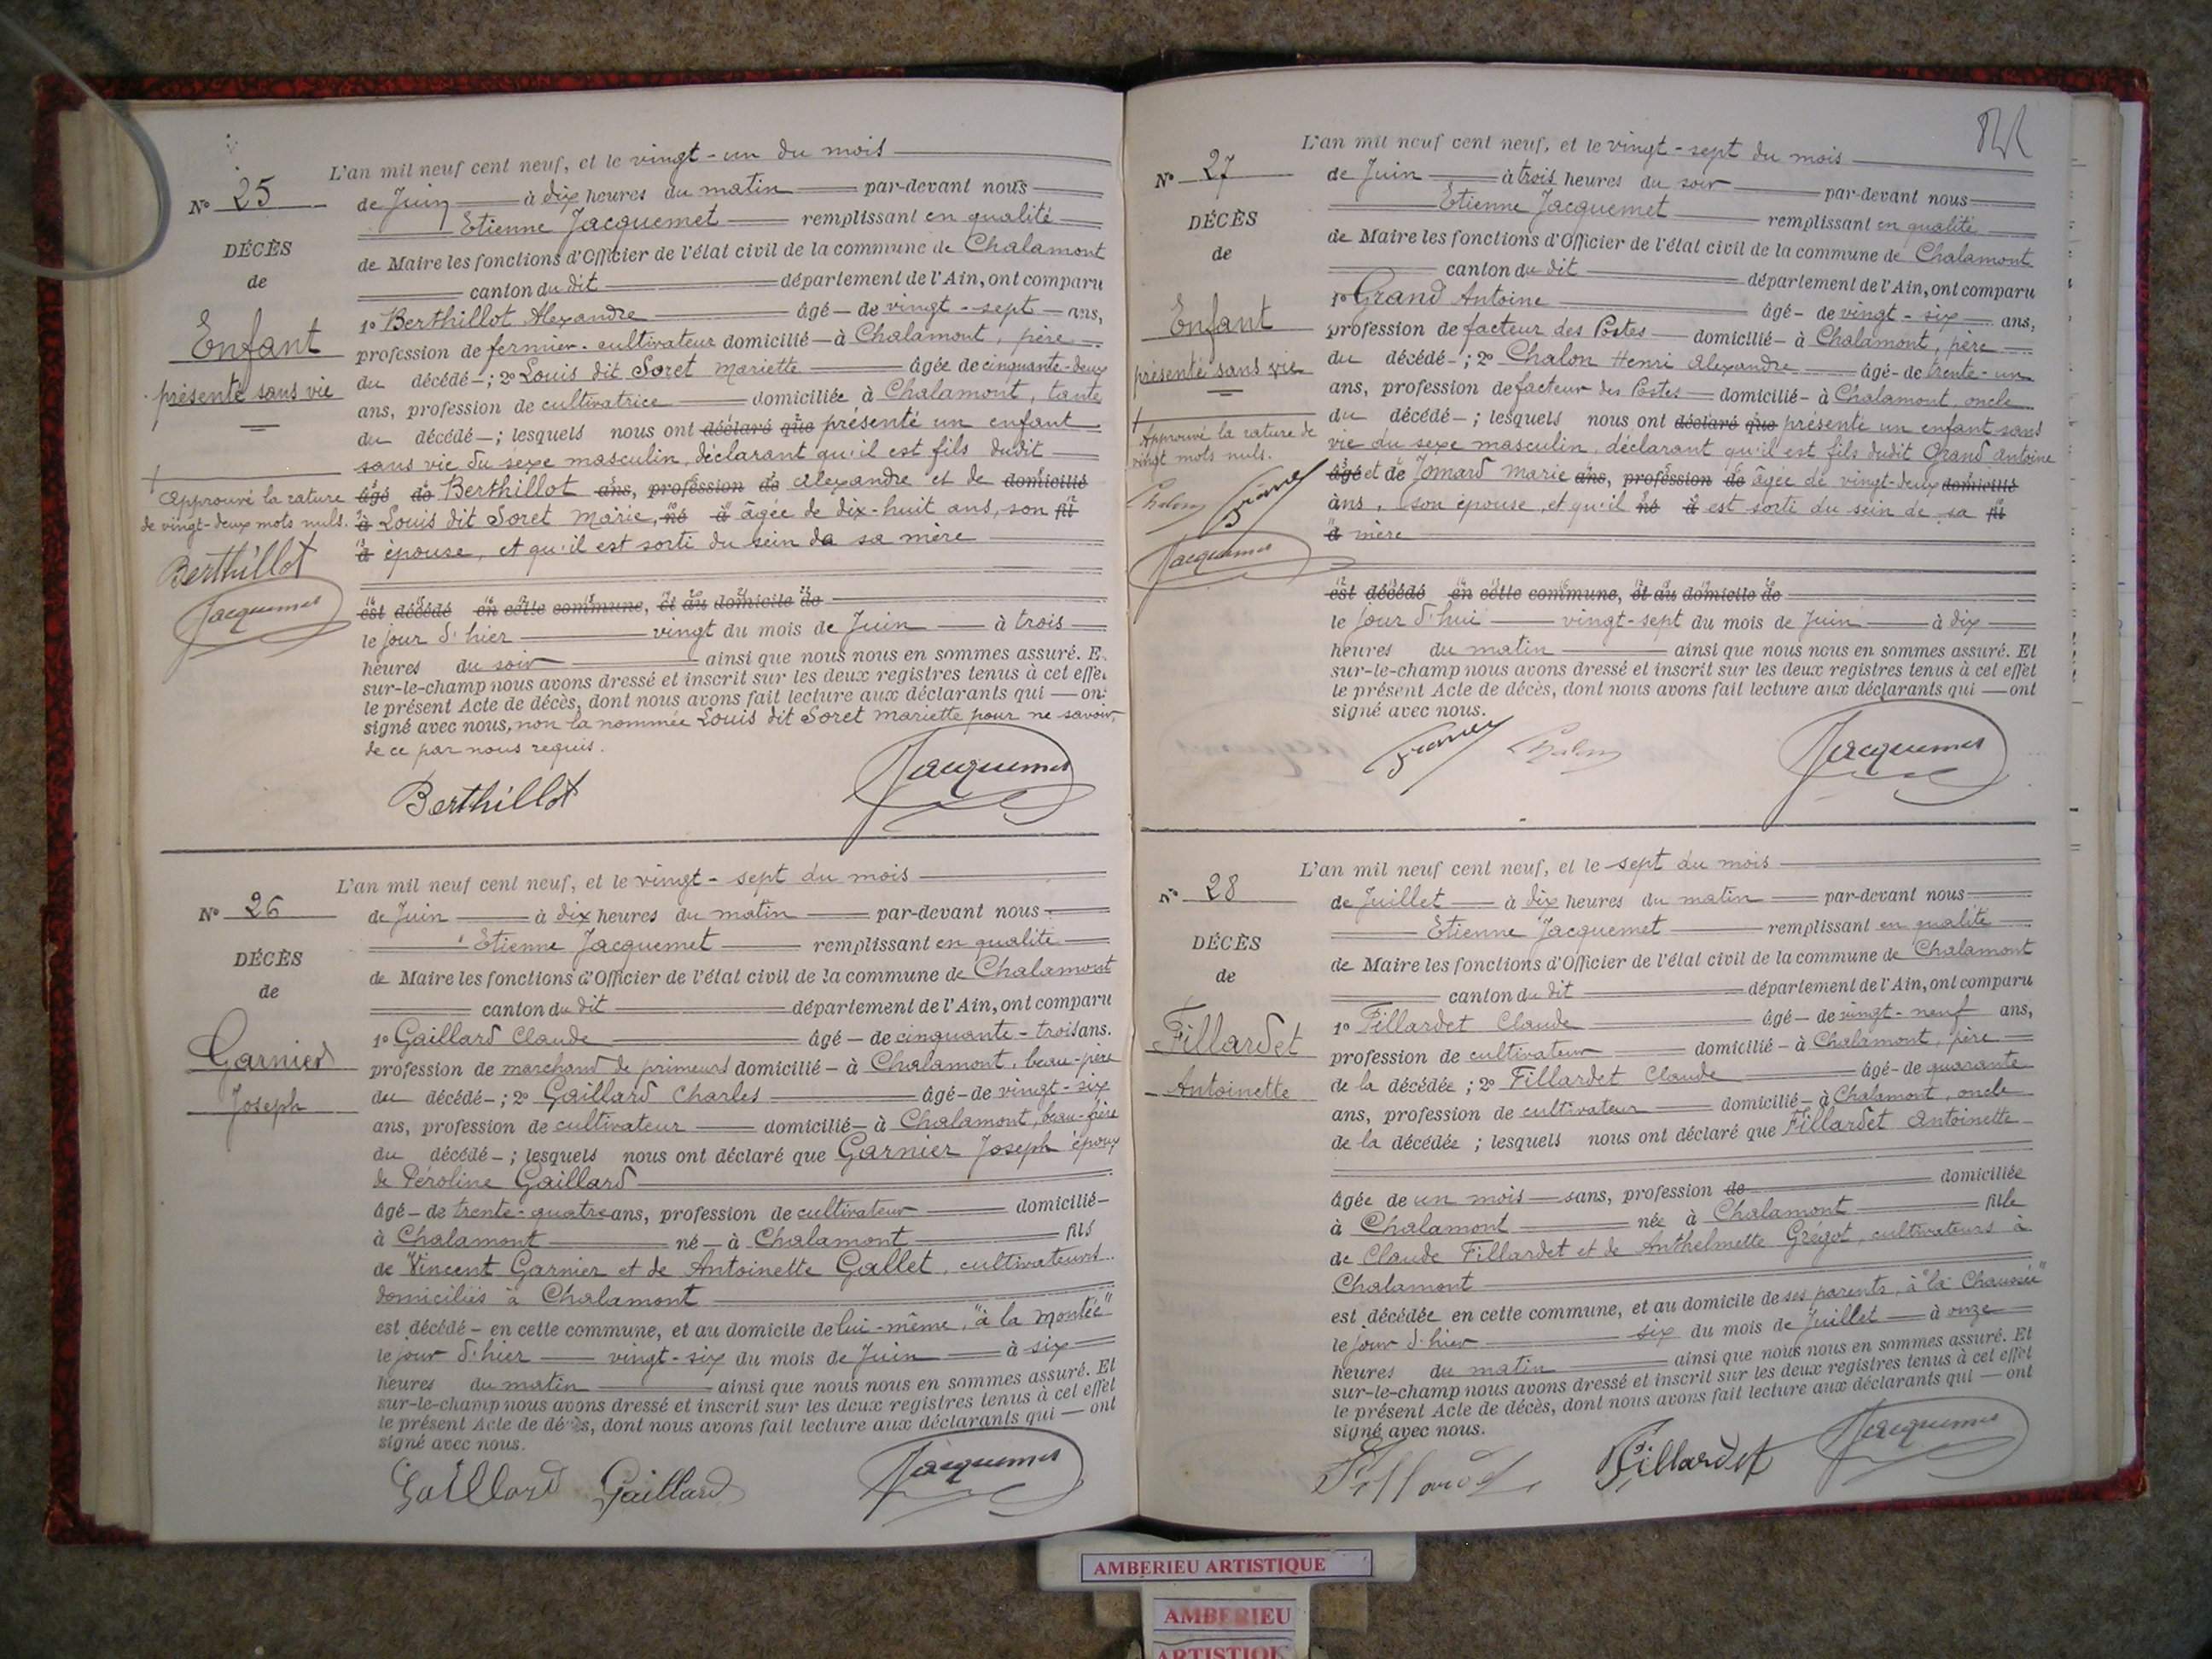 L'an mil neuf cent neuf, et le vingt-un du mois
N° 25
de Juin à dix heures du matin par-devant nous
Etienne Jacquemet remplissant en qualité
DÉCÈS
de Maire les fonctions d'Officier de l'état civil de la commune de Chalamont
de
canton du dit département de l'Ain, ont comparu
Enfant
1° Berthillot Alexandre âgé de vingt-sept ans,
profession de fermier-cultivateur domicilié à Chalamont, père
présenté sans vie
du décédé ; 2° Louis dit Soret Mariette âgée de cinquante-deux
ans, profession de cultivatrice domiciliée à Chalamont, tante
du décédé ; lesquels nous ont déclaré que présenté un enfant
sans vie du sexe masculin, déclarant qu'il est fils dudit
Approuvé la rature
âgé de Berthillot ans, profession de Alexandre et de domicilié
de vingt-deux mots nuls.
à Louis dit Soret Marie, né à âgée de dix-huit ans, son fil
à épouse, et qu'il est sorti du sein de sa mère
Berthillot
Jacquemet
est décédé en cette commune, et au domicile de
le jour d'hier vingt du mois de Juin à trois
heures du soir ainsi que nous nous en sommes assuré. E
sur-le-champ nous avons dressé et inscrit sur les deux registres tenus à cet effe
le présent Acte de décès, dont nous avons fait lecture aux déclarants qui on
signé avec nous, non la nommée Louis dit Soret Mariette pour ne savoir,
de ce par nous requis.
Berthillot Jacquemet
L'an mil neuf cent neuf, et le vingt-sept du mois
N° 26
de Juin à dix heures du matin par-devant nous
Etienne Jacquemet remplissant en qualité
DÉCÈS
de Maire les fonctions d'Officier de l'état civil de la commune de Chalamont
de
canton du dit département de l'Ain, ont comparu
Garnier
1° Gaillard Claude âgé de cinquante-trois ans.
profession de marchand de primeurs domicilié à Chalamont, beau-père
Joseph
du décédé ; 2° Gaillard Charles âgé de vingt-six
ans, profession de cultivateur domicilié à Chalamont, beau-frère
du décédé ; lesquels nous ont déclaré que Garnier Joseph époux
de Péroline Gaillard
âgé de trente-quatre ans, profession de cultivateur domicilié
à Chalamont né à Chalamont fils
de Vincent Garnier et de Antoinette Gallet, cultivateurs
domiciliés à Chalamont
est décédé en cette commune, et au domicile de lui-même, "à la Montée"
le jour d'hier vingt-six du mois de Juin à six
heures du matin ainsi que nous nous en sommes assuré. Et
sur-le-champ nous avons dressé et inscrit sur les deux registres tenus à cet effet
le présent Acte de décès, dont nous avons fait lecture aux déclarants qui ont
signé avec nous.
Gaillard Gaillard Jacquemet
L'an mil neuf cent neuf, et le vingt-sept du mois
N° 27
de Juin à trois heures du soir par-devant nous
Etienne Jacquemet remplissant en qualité
DÉCÈS
de Maire les fonctions d'Officier de l'état civil de la commune de Chalamont
de
canton du dit département de l'Ain, ont comparu
Enfant
1° Grand Antoine âgé de vingt-six ans,
profession de facteur des Postes domicilié à Chalamont, père
présenté sans vie
du décédé ; 2° Chalon Henri Alexandre âgé de trente-un
ans, profession de facteur des Postes domicilié à Chalamont, oncle
du décédé ; lesquels nous ont déclaré que présenté un enfant sans
Approuvé la rature de
vie du sexe masculin, déclarant qu'il est fils dudit Grand Antoine
vingt mots nuls.
âgé et de Jomard Marie ans, profession de âgée de vingt-deux domicilié
ans, son épouse, et qu'il né à est sorti du sein de sa fil
à mère
Chalon
Jacquemet
est décédé en cette commune, et au domicile de
le jour d'hui vingt-sept du mois de Juin à dix
heures du matin ainsi que nous nous en sommes assuré. Et
sur-le-champ nous avons dressé et inscrit sur les deux registres tenus à cet effet
le présent Acte de décès, dont nous avons fait lecture aux déclarants qui ont
signé avec nous.
Chalon Jacquemet
L'an mil neuf cent neuf, et le sept du mois
N° 28
de Juillet à dix heures du matin par-devant nous
Etienne Jacquemet remplissant en qualité
DÉCÈS
de Maire les fonctions d'Officier de l'état civil de la commune de Chalamont
de
canton du dit département de l'Ain, ont comparu
Fillardet
1° Fillardet Claude âgé de vingt-neuf ans,
profession de cultivateur domicilié à Chalamont, père
Antoinette
de la décédée ; 2° Fillardet Claude âgé de quarante
ans, profession de cultivateur domicilié à Chalamont, oncle
de la décédée ; lesquels nous ont déclaré que Fillardet Antoinette
âgée de un mois sans, profession de domiciliée
à Chalamont née à Chalamont fille
de Claude Fillardet et de Anthelmette Grégot, cultivateurs à
Chalamont
est décédée en cette commune, et au domicile de ses parents, à "la Chaussée"
le jour d'hier six du mois de Juillet à onze
heures du matin ainsi que nous nous en sommes assuré. Et
sur-le-champ nous avons dressé et inscrit sur les deux registres tenus à cet effet
le présent Acte de décès, dont nous avons fait lecture aux déclarants qui ont
signé avec nous.
Fillardet Fillardet Jacquemet
AMBERIEU ARTISTIQUE
AMBERIEU
ARTISTIQUE